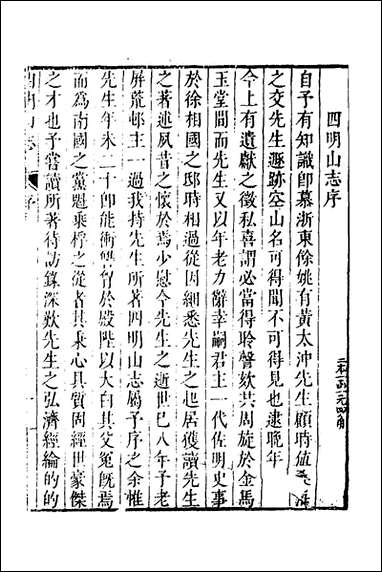 四明山志序
自予有知識卽慕浙東餘姚有黃太沖先生顧時値
之交先生遯跡空山名可得聞不可得見也逮晚年
今上有遺獻之徵私喜謂必當得聆謦欬共周旋於金馬
玉堂間而先生又以年老力辭幸嗣君主一代佐明史事
於徐相國之邸時相過從因細悉先生之起居獲讀先生
之著述夙昔之懷於焉少慰今先生之逝世已八年予老
屏荒邨主一過我持先生所著四明山志屬予序之余惟
先生年未二十卽能衝讐胷於殿陛以大白其父冤旣焉
而爲南國之黨魁乘桴之從者其秉心具質固經世豪傑
之才也予嘗讀所著待訪錄深歎先生之弘濟經綸的的
四明山志
序
一